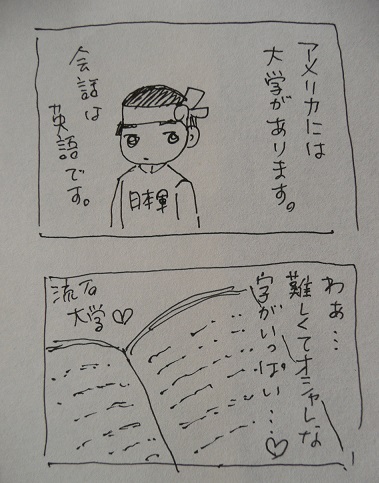 アメリカには
大学があります。
会話は
英語です。
日本軍
わあ…
難しくてオシャレな
字がいっぱい…♡
流石
大学♡